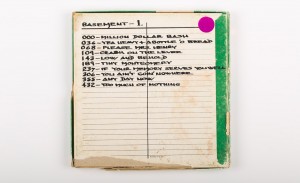 BASEMENT - 1.
000 - MILLION DOLLAR BASH
036 - YEA HEAVY & A BOTTLE O BREAD
068 - PLEASE MRS. HENRY
109 - CRASH ON THE LEVEE
143 - LOW AND BEHOLD
189 - TINY MONTGOMERY
237 - IF YOUR MEMORY SERVES YOU WELL
306 - YOU AIN'T GOIN NOWHERE
355 - ANY DAY NOW
432 - TOO MUCH OF NOTHING